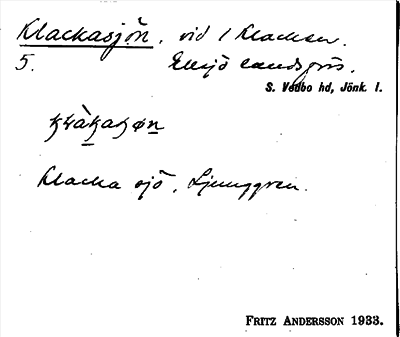 Klackasjön, vid 1 Klacken.
5. Eksjö landsförs.
S. Vedbo hd, Jönk. l.
Klacka sjö, Ljunggren.
FRITZ ANDERSSON 1933.